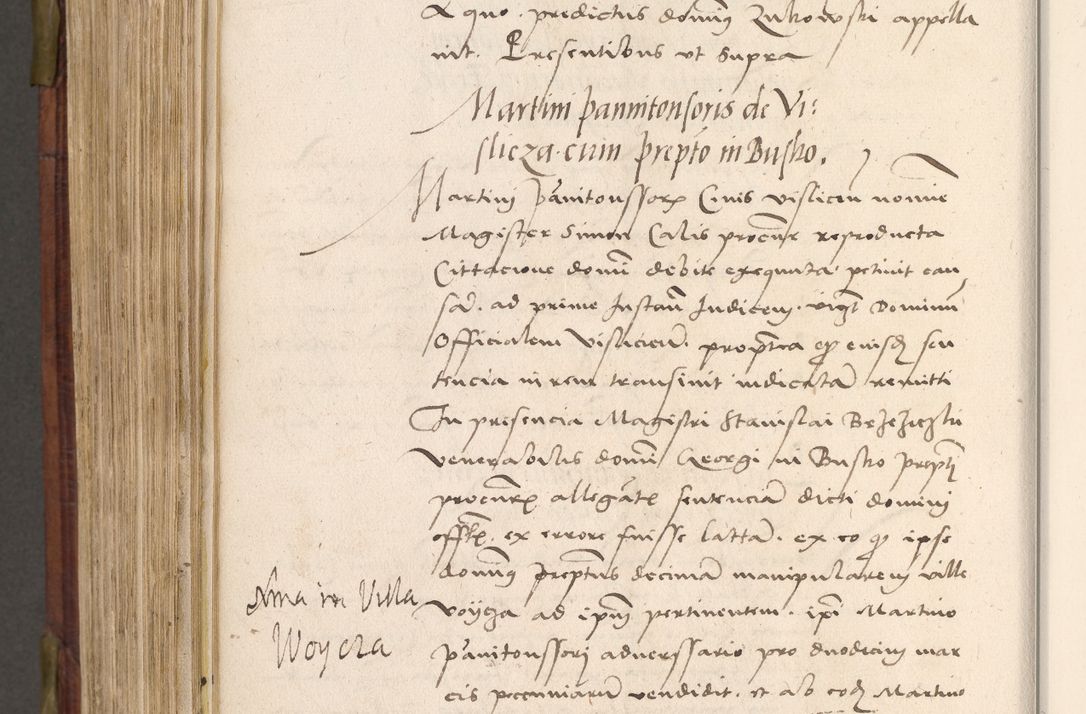 A quo predictus domin9 Zukowski appella
uit. Presentibus ut supra
Martini pannitonsoris de Vi:
slicza cum prepto in Busko.
Martinj Panitonssorꝭ Civis vislicien nomine
Magister Simon Calis procur reproducta
Cittacione domi debite exequuta petiuit cau
sa. ad prime Instan Iudicem. vigt Dominum
Officialem Vislicien. propterea qꝫ eiusdꝫ sen
tencia in rem transiuit iudicatā remitti
In presencia Magistri Stanislai
Venerabilis domi Georgi in Busko prepti
procurꝭ allegatꝭ sentenciā dicti dominj
offlꝭ. ex errore fuisse lattā. ex eo qꝫ ipse
domin9 preptus decimā manipularem ville
Voycza ad ipm pertinentem. ipi Martino
Panitonssorj adverssario pro duodecim mar
cis peccuniarū vendidit. et ab eodꝫ Martino
Xma in Villa
Woycza